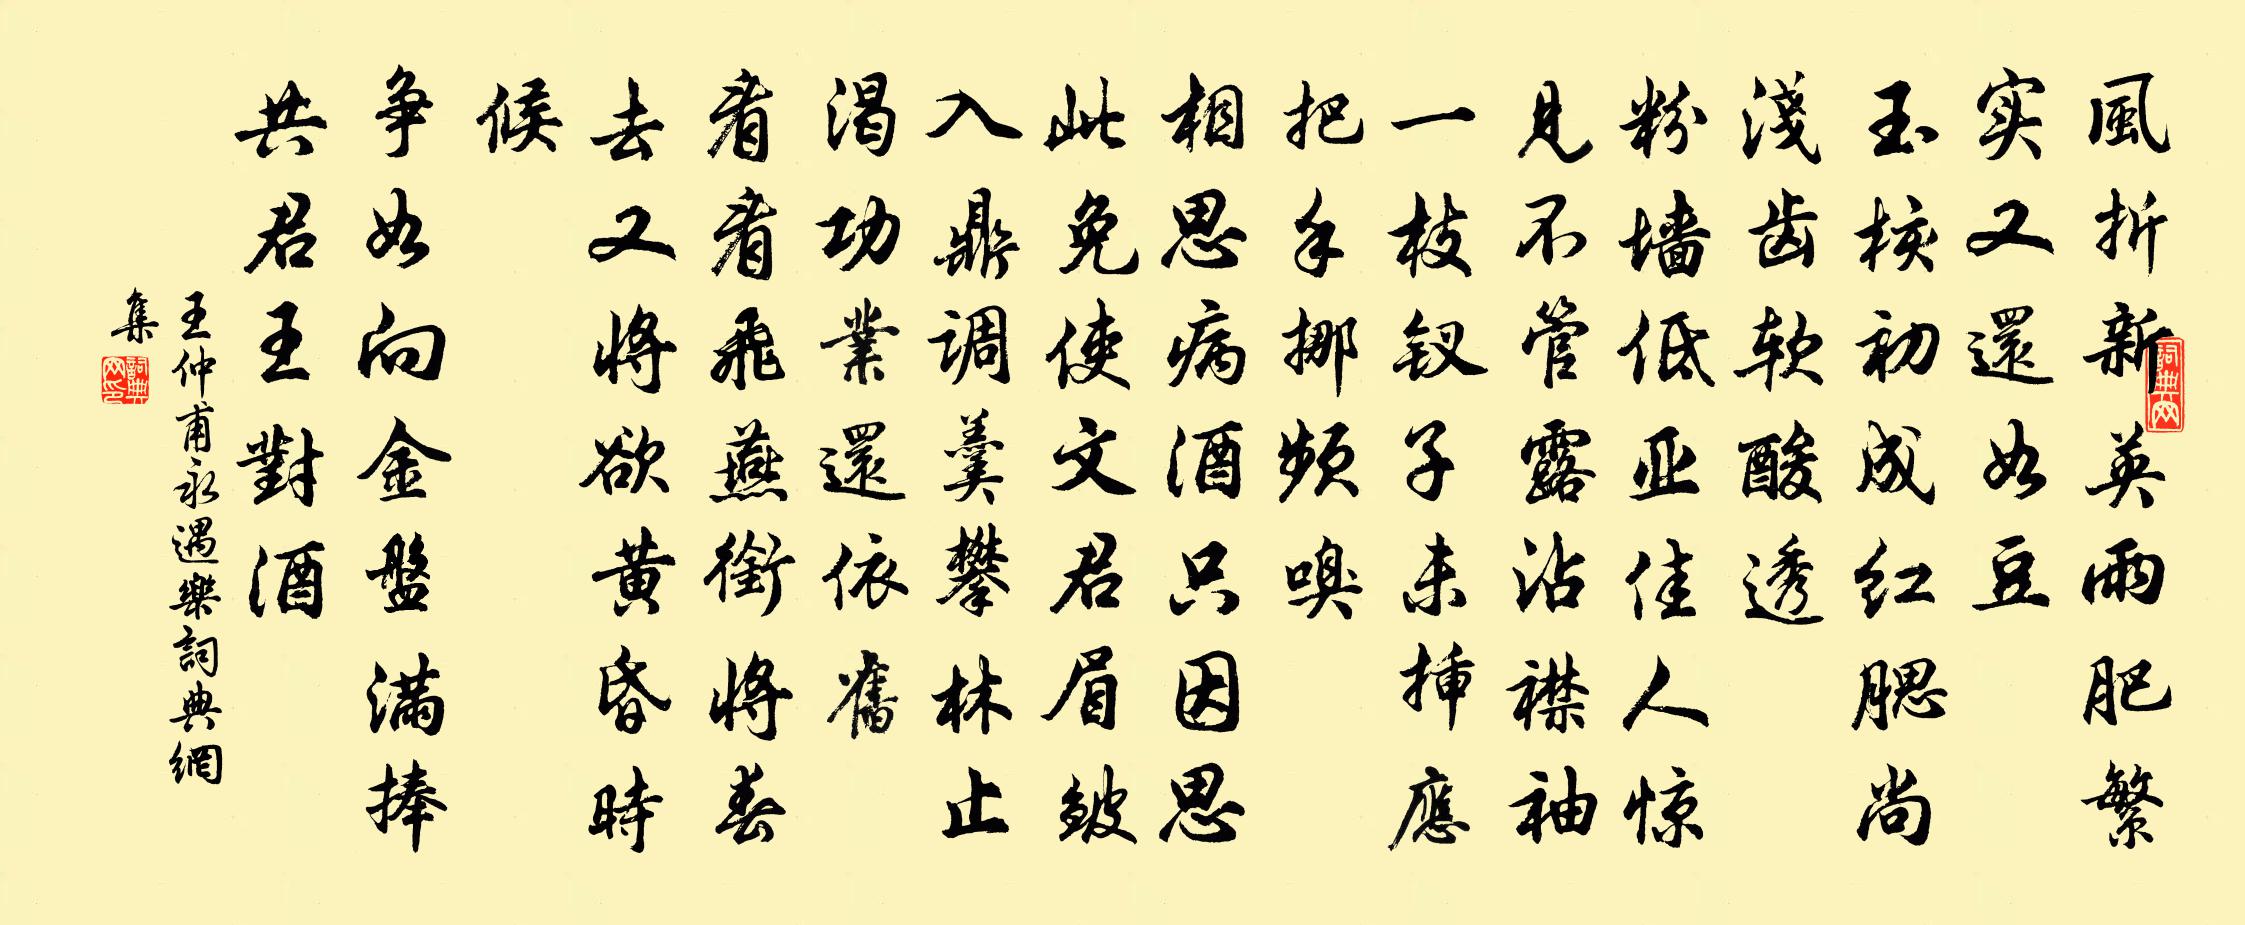 風折新英雨肥繁
实又還如豆
玉核初成红腮尚
淺齿软酸透
粉墙低亚佳人惊
見不管露沾襟袖
一枝钗子未挿應
把手挪频嗅
相思病酒只因思
此免使文君眉皱
入鼎调羹攀林止
渴功業還依舊
看看飛燕銜将春
去又将欲黄昏時
候
争如向金盤满捧
共君王對酒
王仲甫永遇樂詞典網
集
詞典网
詞典网印